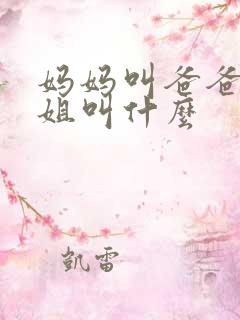 妈妈叫爸爸
姐叫什麼
凱雷